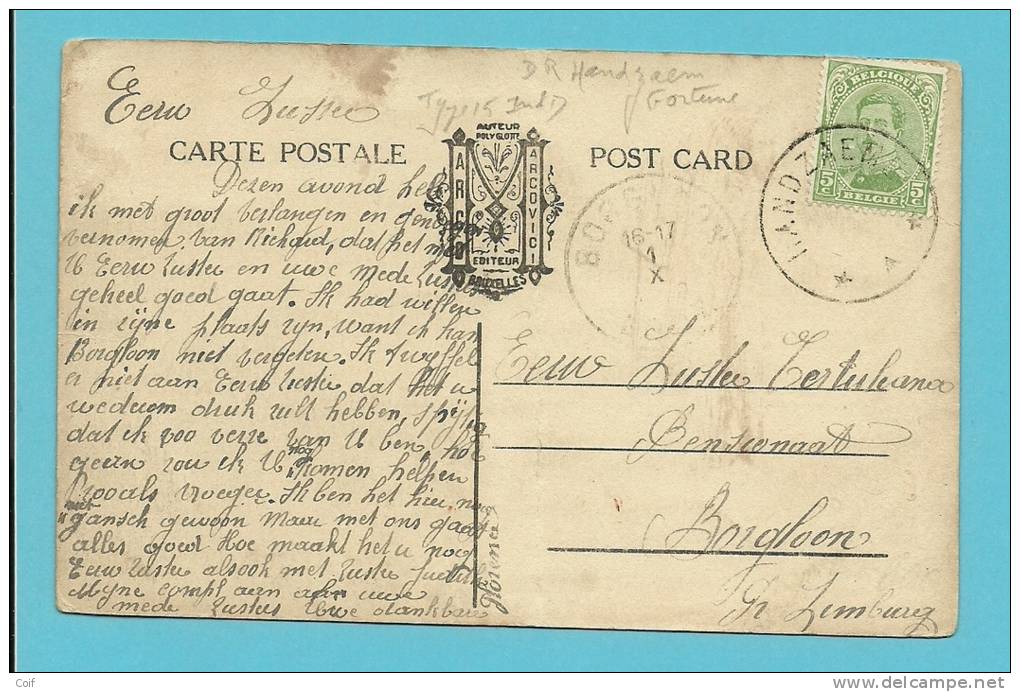 DR Handzaem
Fortune
Eerw Zuster
CARTE POSTALE
AUTEUR
POLYGLOTTE
ARCO
ARCOVICI
EDITEUR
BRUXELLES
POST CARD
BELGIQUE
5c 5c
BELGIË
HANDZAEM
BO
16-17
1
X
Dezen avond heb
ik met groot verlangen en
vernomen van Richard, dat het met
U Eerw Zuster en uwe mede Zusters
geheel goed gaat. Ik had willen
in zijne plaats zijn, want ik kan
Borgloon niet vergeten. Ik twyffel
er niet aan Eerw Zuster dat het u
wederom druk zult hebben, spijtig
dat ik zoo verre van U ben, hoe
geern zou ik U nog komen helpen
zooals vroeger. Ik ben het hier nog
niet
gansch gewoon Maar met ons gaat
alles goed Hoe maakt het u nog
Eerw Zuster alsook met Zuster Judith
Mijne compl aan aan uwe
mede Zusters Uwe dankbare
Eerw Zuster Tertuliana
Pensionaat
Borgloon
Pr Limburg
Coif
www.delcampe.net